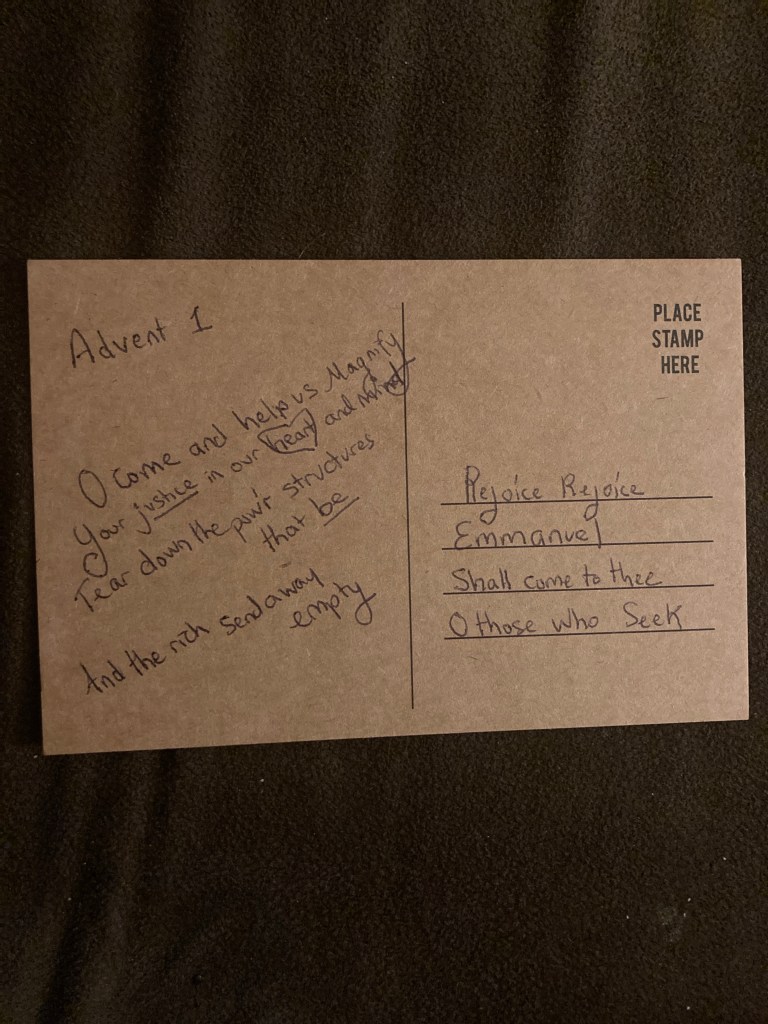 Advent 1
O come and help us Magnify
Your justice in our heart and mind
Tear down the pow'r structures
that be
And the rich send away
empty
PLACE
STAMP
HERE
Rejoice Rejoice
Emmanuel
Shall come to thee
O those who Seek